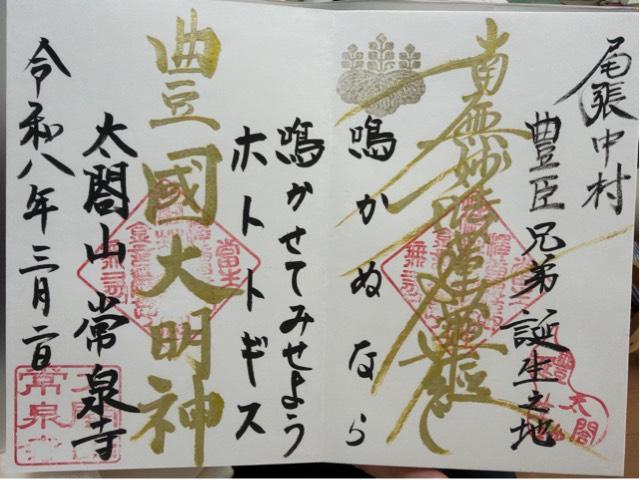 尾張中村
豊臣兄弟誕生之地
南無妙法蓮華経
鳴かぬなら
鳴かせてみせよう
ホトトギス
豊國大明神
太閤山常泉寺
令和八年三月二日
太閤
常泉